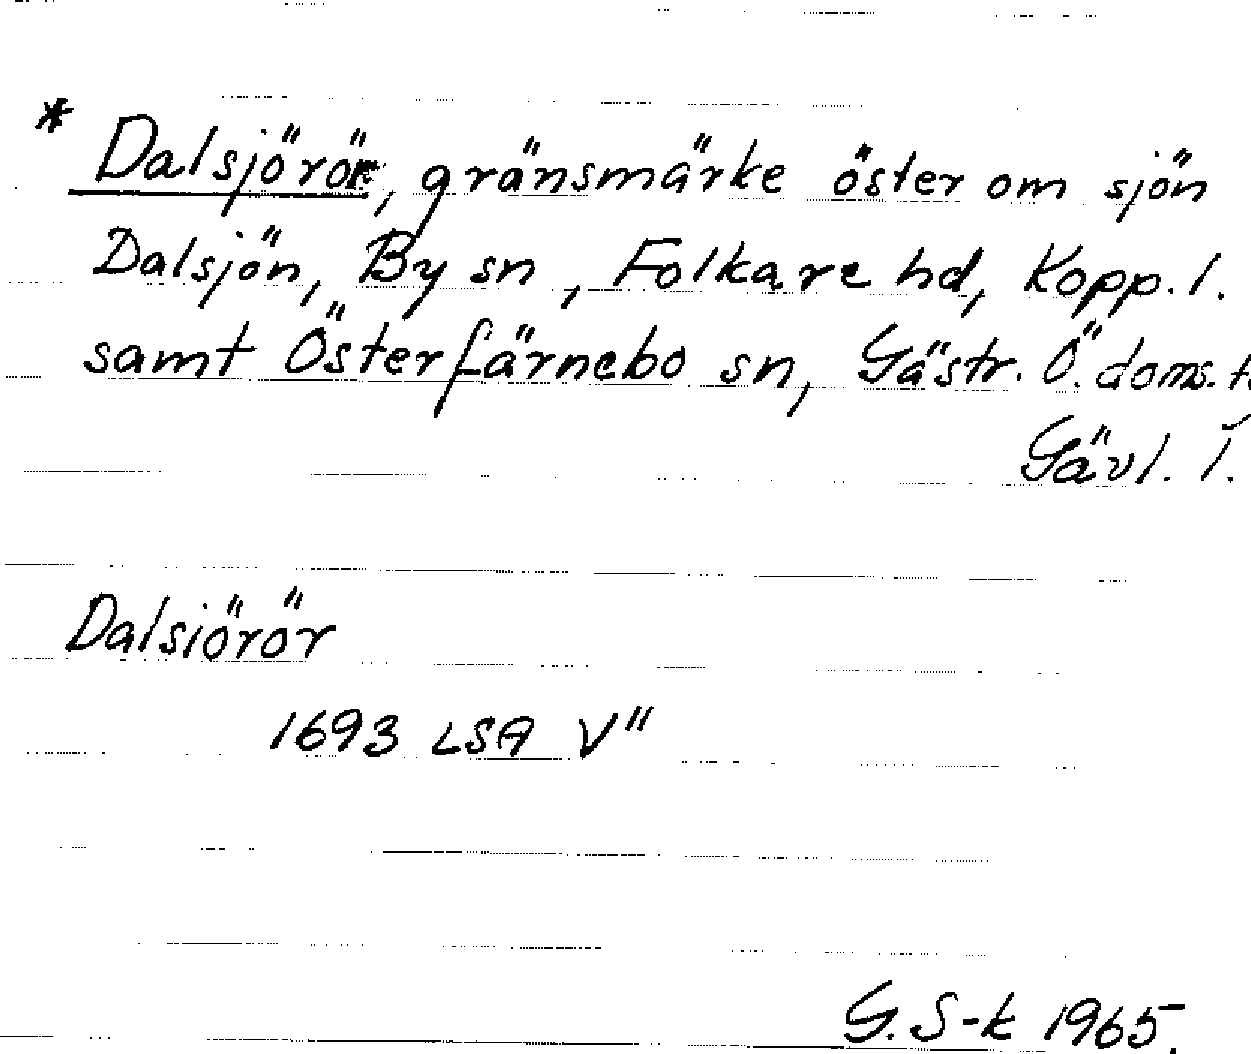 * Dalsjörör, gränsmärke öster om sjön
Dalsjön, By sn, Folkare hd, Kopp. l.
samt Österfärnebo sn, Gästr. Ö. doms. t.
Gävl. l.
Dalsiörör
1693 LSA V"
G. S-k 1965.